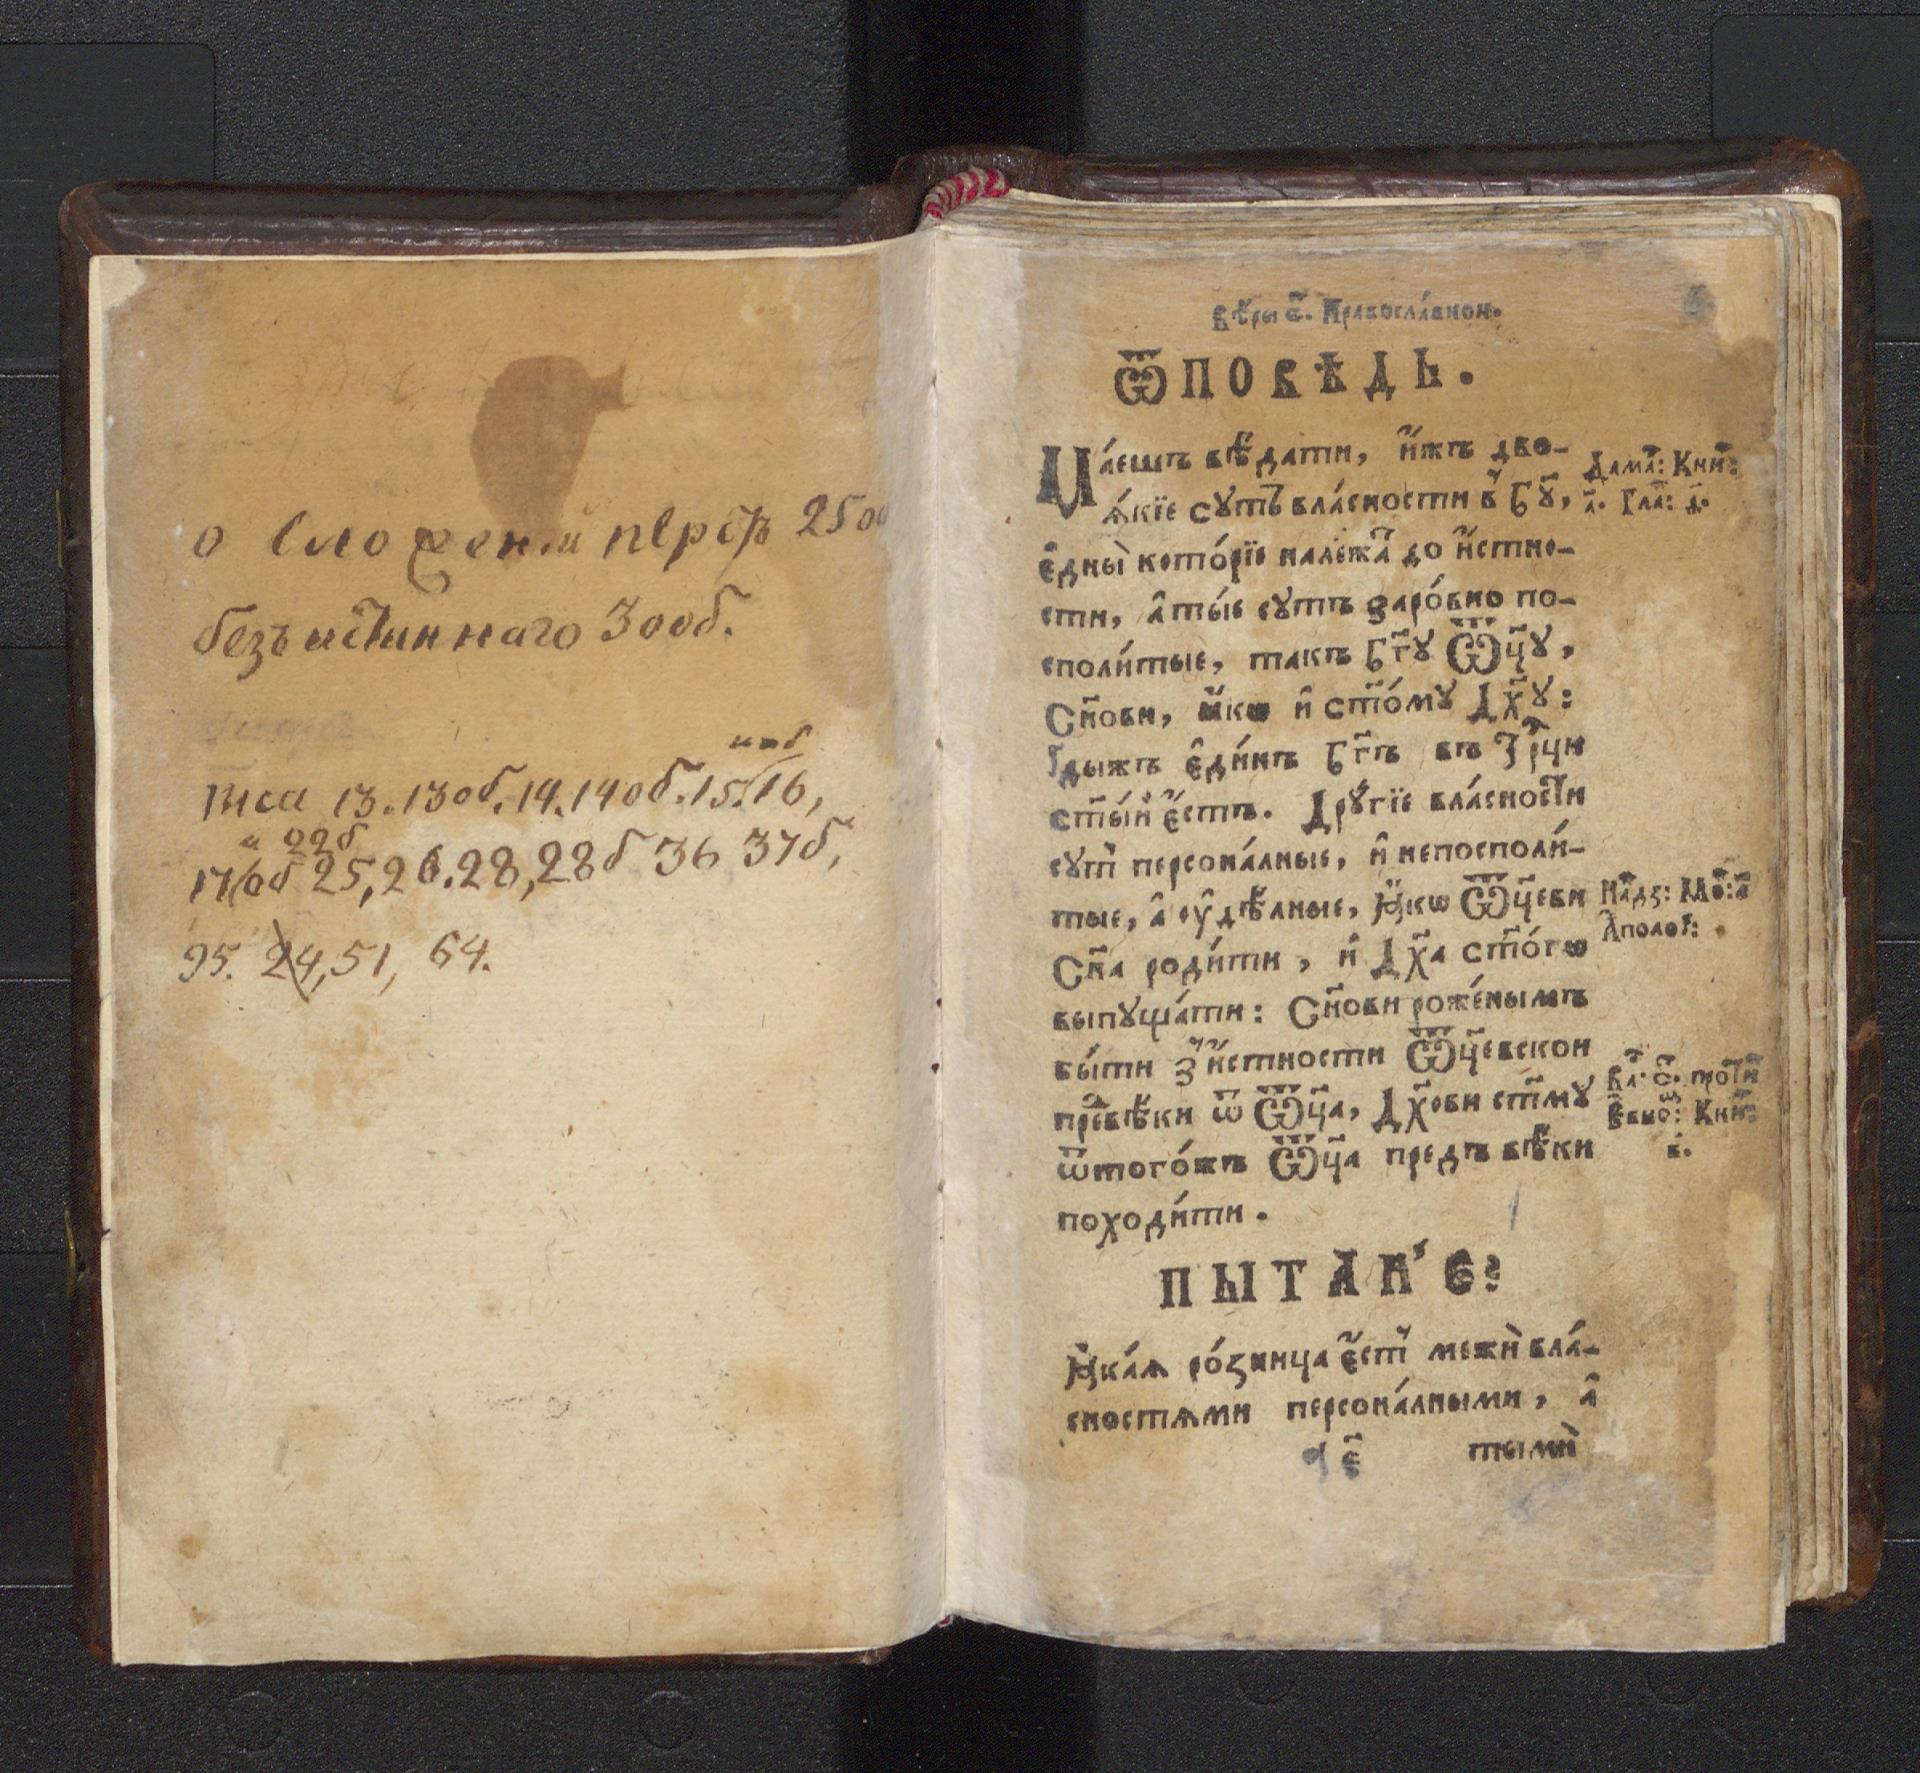 о сложении перстъ 25об
безъ истиннаго 30об.
13. 13об. 14. 14об. 15. 16,
22б
17об 25, 26. 28, 28б 36 37б,
95. 24, 51, 64.
вѣ́ры с҃. Правосла́вной.
ѾПОВѢДЬ.
Ма́ешъ вѣ́дати, и҆́жъ дво-
ѧ́кїе сутъ вла́сности в̾ Бг҃ꙋ,
є҆дны̀ кото́рїе належа́тъ до и҆́стно-
сти, а҆ ты́е сꙋть заро́вно по-
споли́тые, такъ Бг҃ꙋ Ѿц҃ꙋ,
Сн҃ови, ꙗ҆́кѡ и҆ ст҃о́мꙋ Дх҃ꙋ:
Гдыжъ є҆ди́нъ Бг҃ъ въ Трⷪ҇ци
ст҃ы́й є҆́стъ. Дрꙋ́гїе вла́сности
сꙋт̾ персона́лные, и҆ непосполи́-
тые, а҆ ѹ҆дѣ́лные, Ꙗ҆́кѡ Ѿц҃еви
Сн҃а роди́ти, и҆ Дх҃а ст҃о́гѡ
выпꙋща́ти: Сн҃ови роже́нымъ
бы́ти з̾ и҆́стности Ѿц҃евской
пре́вѣки ѿ Ѿц҃а, Дх҃ови ст҃мꙋ
ѿтого́жъ Ѿц҃а предъ вѣ́ки
походи́ти.
Дамⷭ҇: Кни́:
а҃. Гла̀: д҃.
На́дз: Мо́: а҃
А҆поло́г:
Ва́: с҃. проти́
Є҆вно́: Кни́:
в҃.
ПЫТАН̾Є:
Ꙗ҆ка́ѧ ро́зница є҆́ст̾ межѝ вла́-
сностѧми персона́лными, а҆
є҃ тымѝ